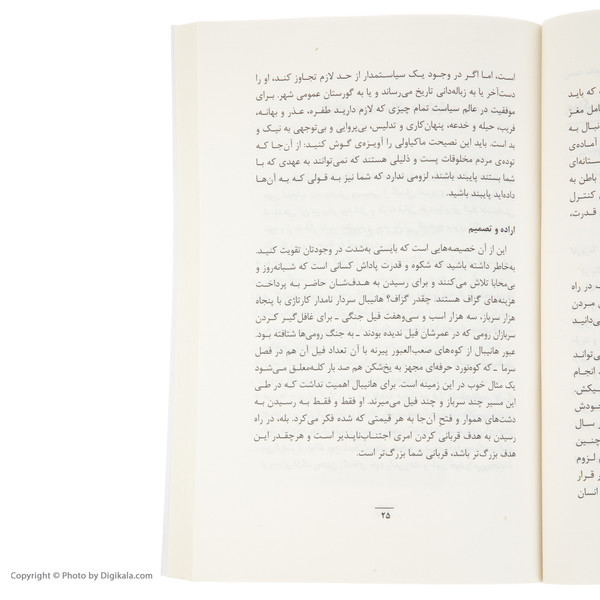 است، اما اگر در وجود یک سیاستمدار از حد لازم تجاوز کند، او را
دست‌آخر یا به زباله‌دانی تاریخ می‌رساند و یا به گورستان عمومی شهر. برای
موفقیت در عالم سیاست تمام چیزی که لازم دارید طفره، عذر و بهانه،
فریب، حیله و خدعه، پنهان‌کاری و تدلیس، بی‌پروایی و بی‌توجهی به نیک و
بد است. باید این نصیحت ماکیاولی را آویزه‌ی گوش کنید: از آن‌جا که
توده‌ی مردم مخلوقات پست و ذلیلی هستند که نمی‌توانند به عهدی که با
شما بستند پایبند باشند، لزومی ندارد که شما نیز به قولی که به آن‌ها
داده‌اید پایبند باشید.
اراده و تصمیم
این از آن خصیصه‌هایی است که بایستی به‌شدت در وجودتان تقویت کنید.
به‌خاطر داشته باشید که شکوه و قدرت پاداش کسانی است که شبانه‌روز و
بی‌محابا تلاش می‌کنند و برای رسیدن به هدف‌شان حاضر به پرداخت
هزینه‌های گزاف هستند. چقدر گزاف؟ هانیبال سردار نامدار کارتاژی با پنجاه
هزار سرباز، سه هزار اسب و سی‌وهفت فیل جنگی ــ برای غافل‌گیر کردن
سربازان رومی که در عمرشان فیل ندیده بودند ــ به جنگ رومی‌ها شتافته بود.
عبور هانیبال از کوه‌های صعب‌العبور پیرنه با آن تعداد فیل آن هم در فصل
سرما ــ که کوه‌نورد حرفه‌ای مجهز به یخ‌شکن هم صد بار کله‌معلق می‌شود
یک مثال خوب در این زمینه است. برای هانیبال اهمیت نداشت که در طی
این مسیر چند سرباز و چند فیل می‌میرند. او فقط و فقط به رسیدن به
دشت‌های هموار و فتح آن‌جا به هر قیمتی که شده فکر می‌کرد. بله، در راه
رسیدن به هدف قربانی کردن امری اجتناب‌ناپذیر است و هرچقدر این
هدف بزرگ‌تر باشد، قربانی شما بزرگ‌تر است.
۲۵
که باید
مغز
به
آماده‌ی
باطن به
کنترل
قدرت،
در راه
مردن
انجام
سال
چنین
لزوم
قرار
انسان
Copyright © Photo by Digikala.com